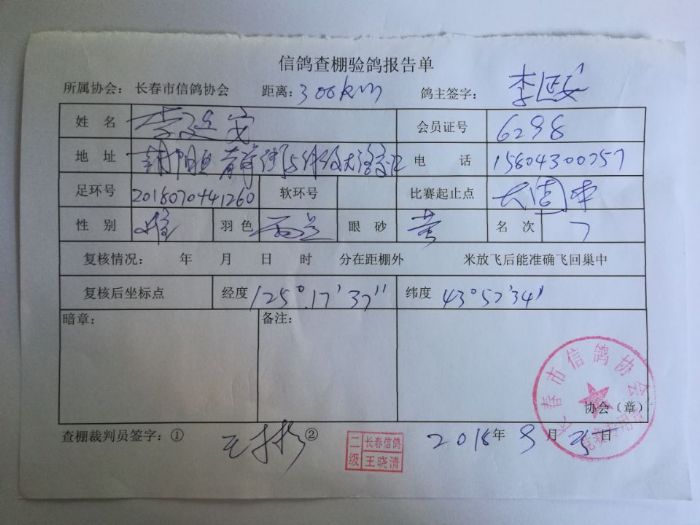 信鸽查棚验鸽报告单
所属协会: 长春市信鸽协会 距离: 300km 鸽主签字: 李延安
姓 名 李延安 会员证号 6298
地 址 电 话 15804300257
足环号 201807041260 软环号 比赛起止点
性 别 雄 羽色 雨点 眼 砂 黄 名 次 7
复核情况: 年 月 日 时 分在距棚外 米放飞后能准确飞回巢中
复核后坐标点 经度 125°.17'37" 纬度 43°52'34"
暗章: 备注:
长春市信鸽协会
协会(章)
查棚裁判员签字:① ② 2018年 9月 25日
二级 长春信鸽 王晓清